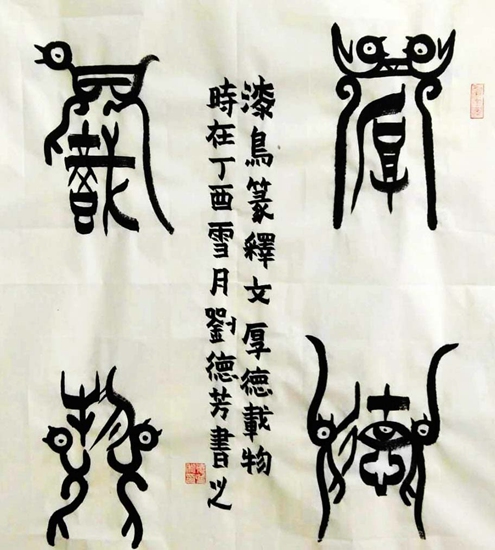 厚德
載物
漆鳥篆釋文厚德載物
時在丁酉雪月劉德芳書之